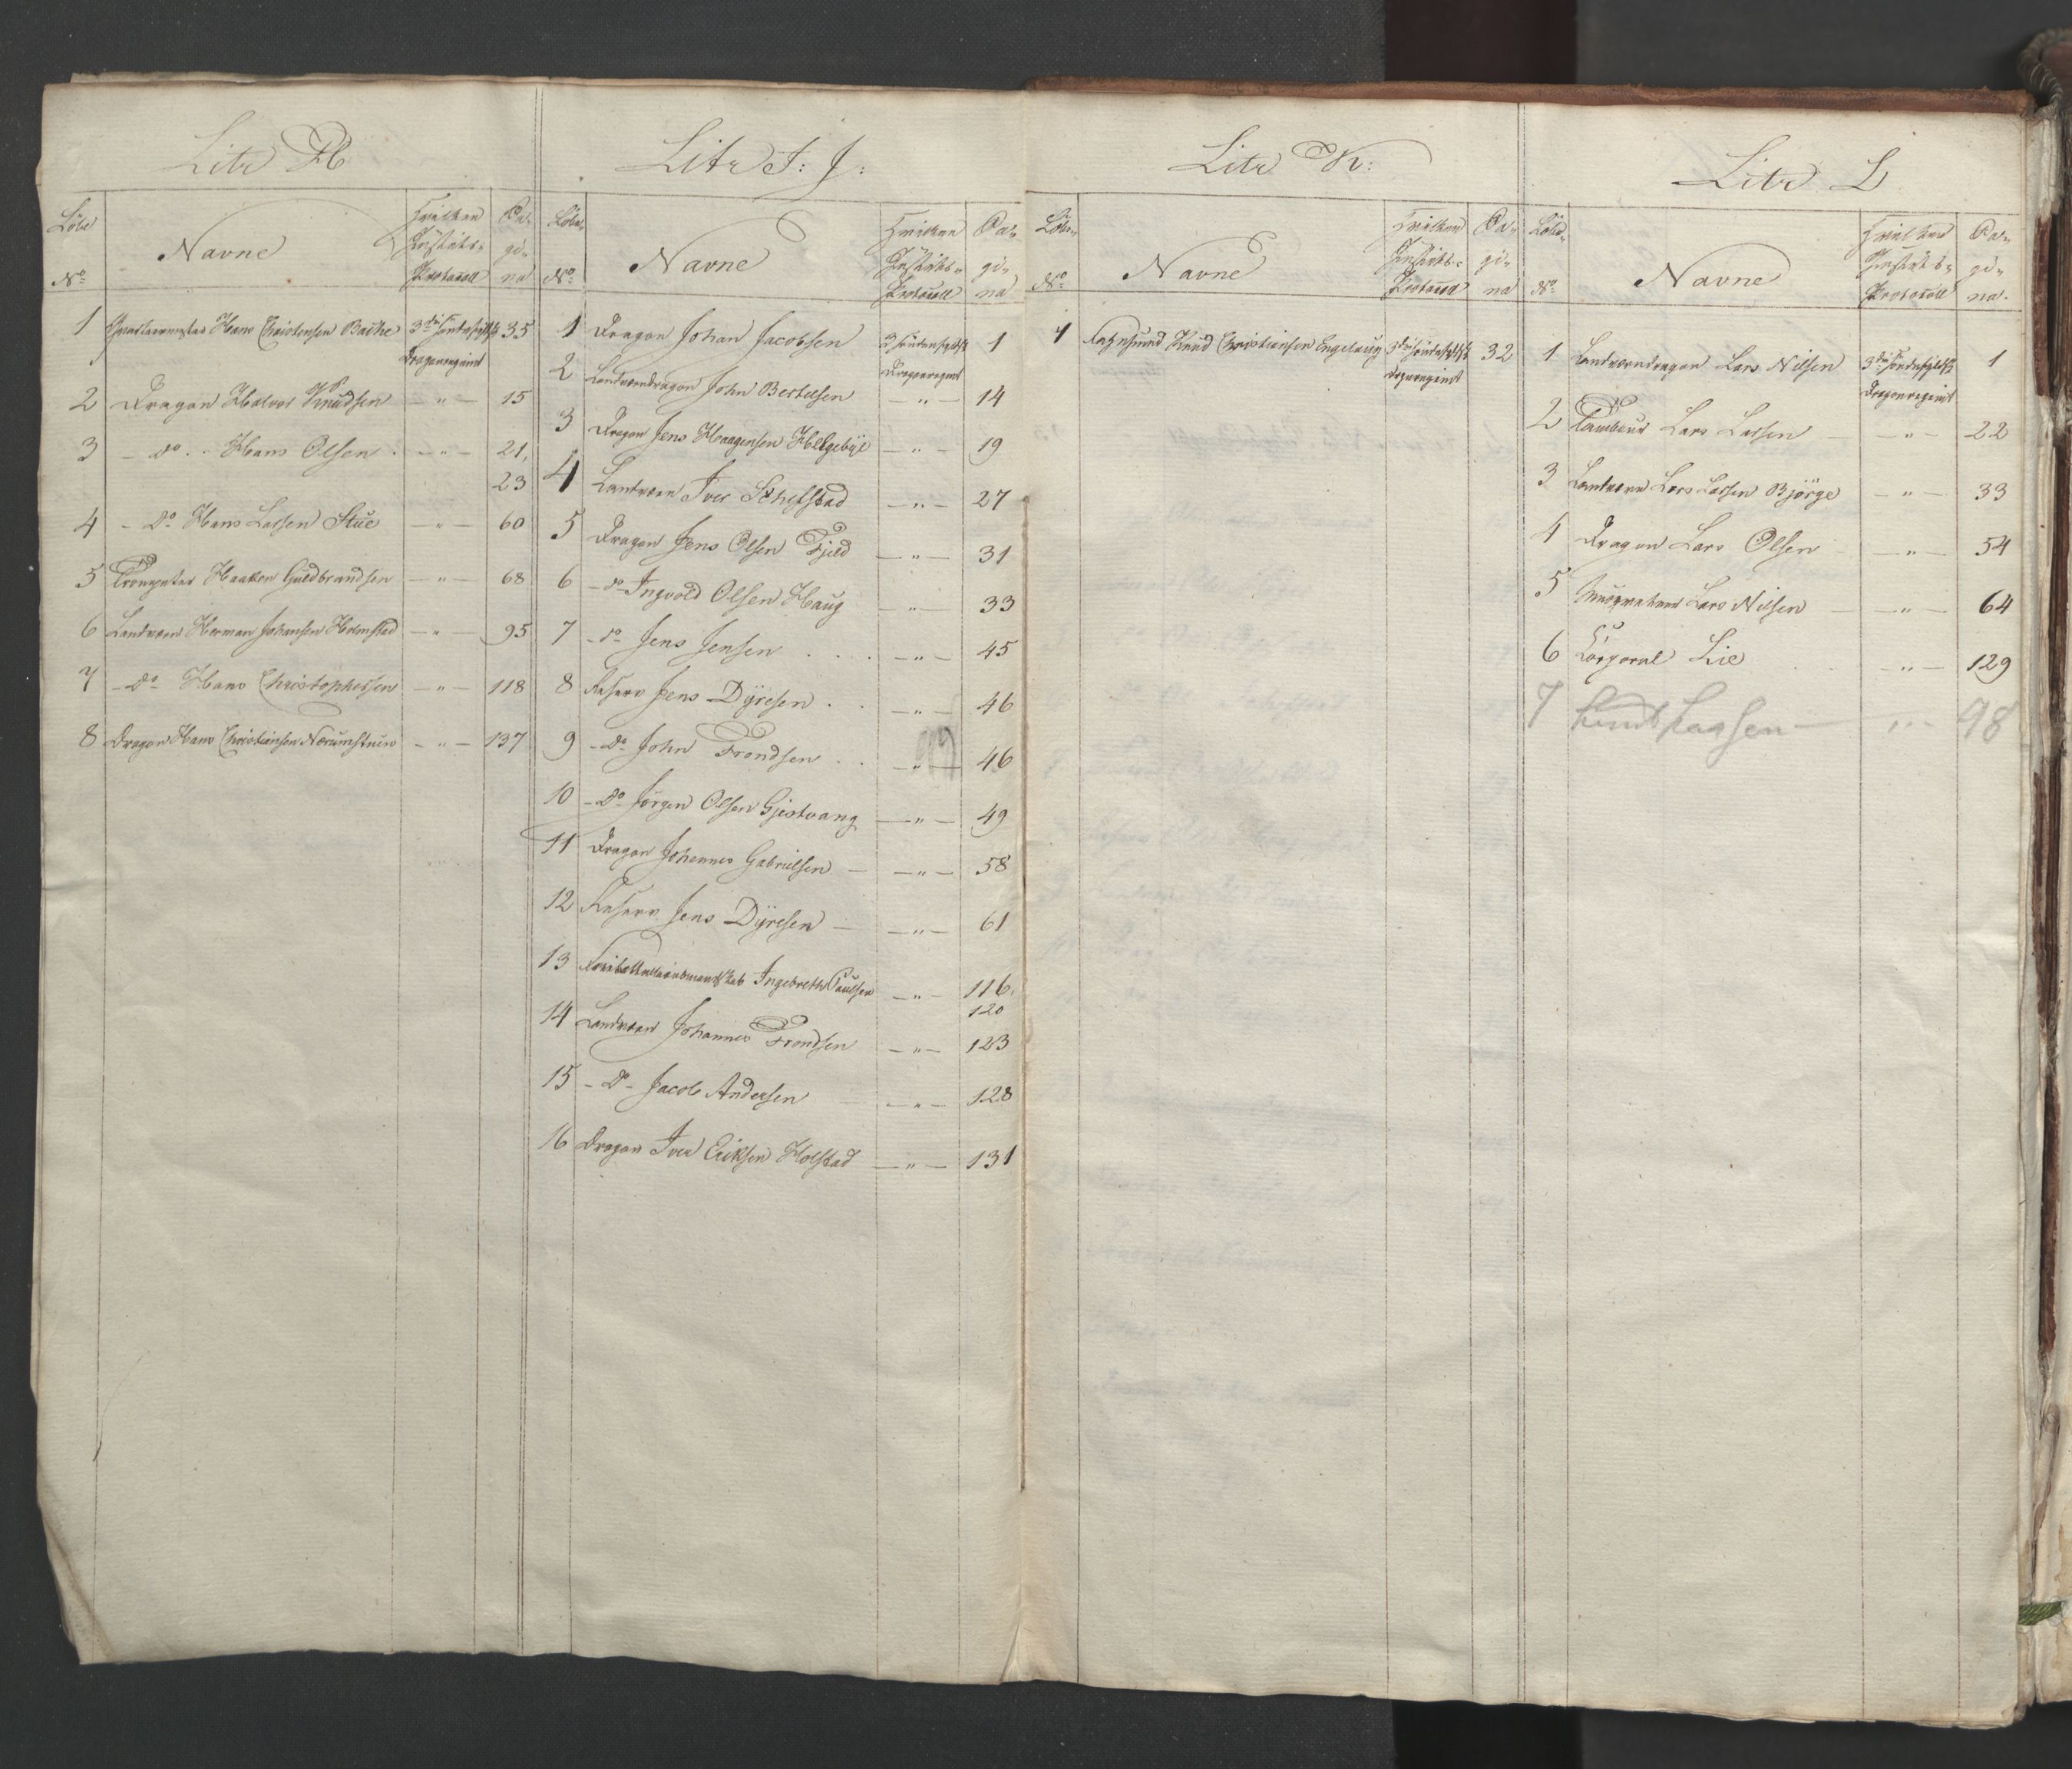 Litr H
Löbe
No
Navne
Hvilken
Justits-
Protocoll
Pa-
gi-
na
1 Qvarteermester Hans Christensen Bache 3die Söndenfjeldsk 35
Dragonregimt
2 Dragon Halvor Knudsen — " — 15
3 — do . . Hans Olsen . — " — 21,
23
4 — Do Hans Larsen Stue — " — 60
5 Trompeter Haaken Guldbrandsen — " — 68
6 Landværn Herman Johansen Holmstad — " — 95
7 — do Hans Christophersen — " — 118
8 Dragon Hans Christiansen Nærumstuen — " — 137
Litr I: J:
Löbe
No
Navne
Hvilken
Justits-
Protocoll
Pa-
gi-
na
1 Dragon Johan Jacobsen 3 söndenfjeldsk 1
Dragonregimt
2 Landværndragon John Bertelsen — " — 14
3 Dragon Jens Haagensen Helgebye — " — 19
4 Landværn Iver Schefstad — " — 27
5 Dragon Jens Olsen Fjeld — " — 31
6 — do Ingvold Olsen Haug — " — 33
7 — do Jens Jensen . . . — " — 45
8 Reserv Jens Dyresen . . — " — 46
9 — Do John Trondsen . . — " — 46
10 — Do Jörgen Olsen Gjestvang — " — 49
11 Dragon Johannes Gabrielsen — — " — 58
12 Reserv Jens Dyresen — — " — 61
13 Ingebreth Paulsen — " — 116.
120
14 Landværn Johannes Trondsen — " — 123
15 — Do — Jacob Andersen — " — 128
16 Dragon Iver Eriksen Holstad — " — 131
Litr K:
Löbe
No
Navne
Hvilken
Justits-
Protocoll
Pa-
gi-
na
1 Knud Christiansen Engelaug 3die Söndenfjeldsk 32
Dragonregimt
Litr L
Löbe
No
Navne
Hvilken
Justits-
Protocoll
Pa-
gi-
na.
1 Landværndragon Lars Nilsen 3die Söndenfjeldsk 1
Dragonregimt
2 Tambour Lars Larsen — — " — 22
3 Landværn Lars Larsen Bjørge — " — 33
4 Dragon Lars Olsen — " — 54
5 Lars Nilsen — — " — 64
6 Corporal Lie . . — " — 129
7 — " — 98